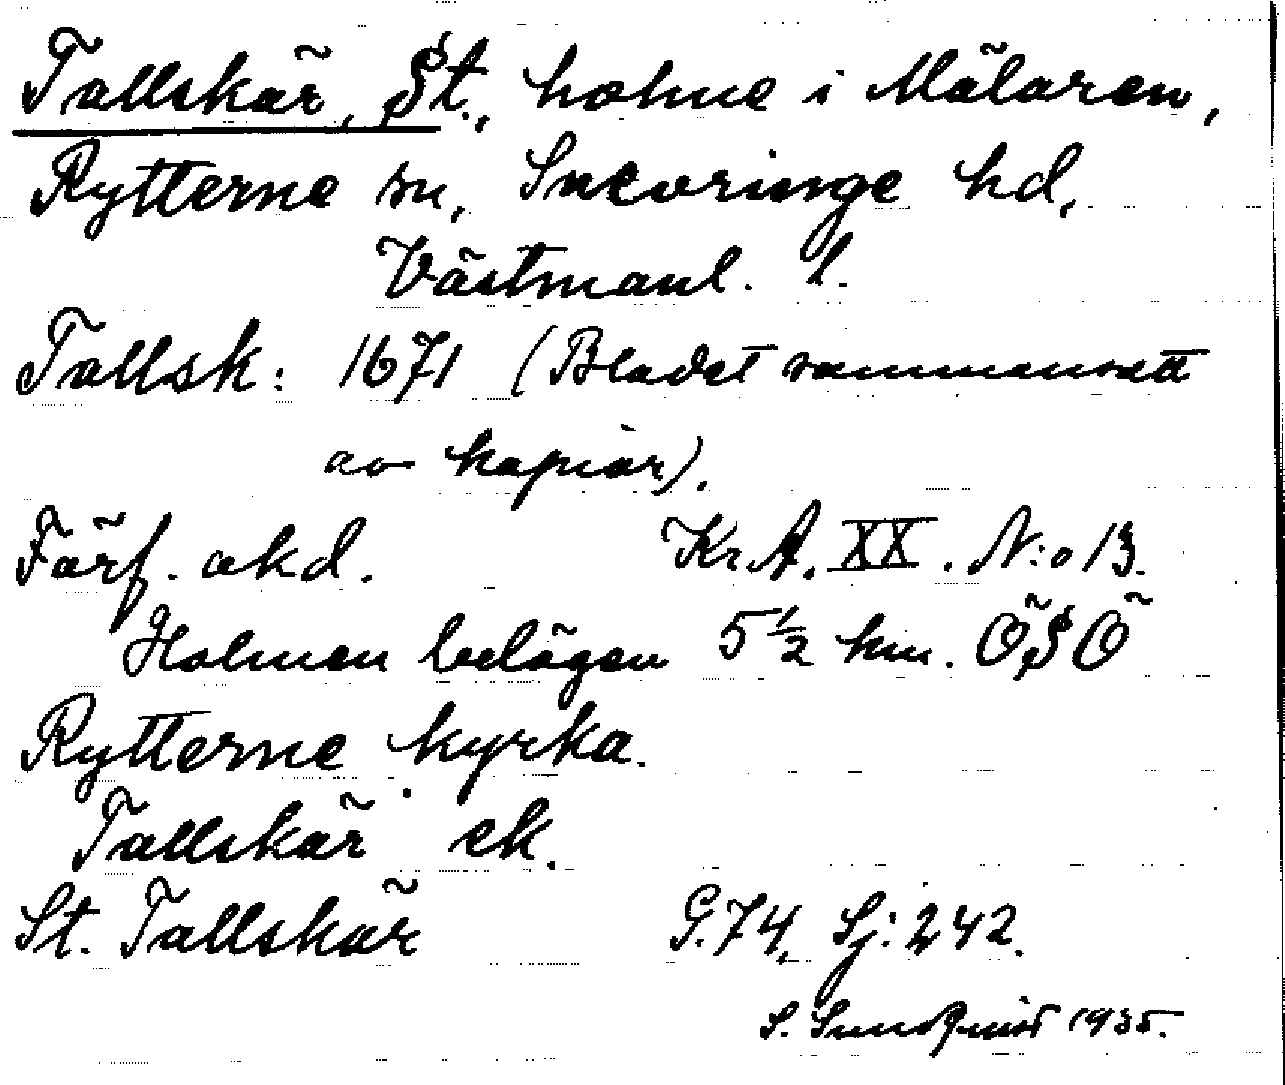 Tallskär, St., holme i Mälaren,
Rytterne sn, Snevringe hd,
Västmanl. l.
Tallsk: 1671 (Bladet sammansatt
av kopior).
Förf. okd. Kr.A. XX. N:o 13.
Holmen belägen 5 1/2 km. ÖSÖ
Rytterne kyrka.
Tallskär ek.
St. Tallskär G.74, Sj: 242.
S. Sundqvist 1935.